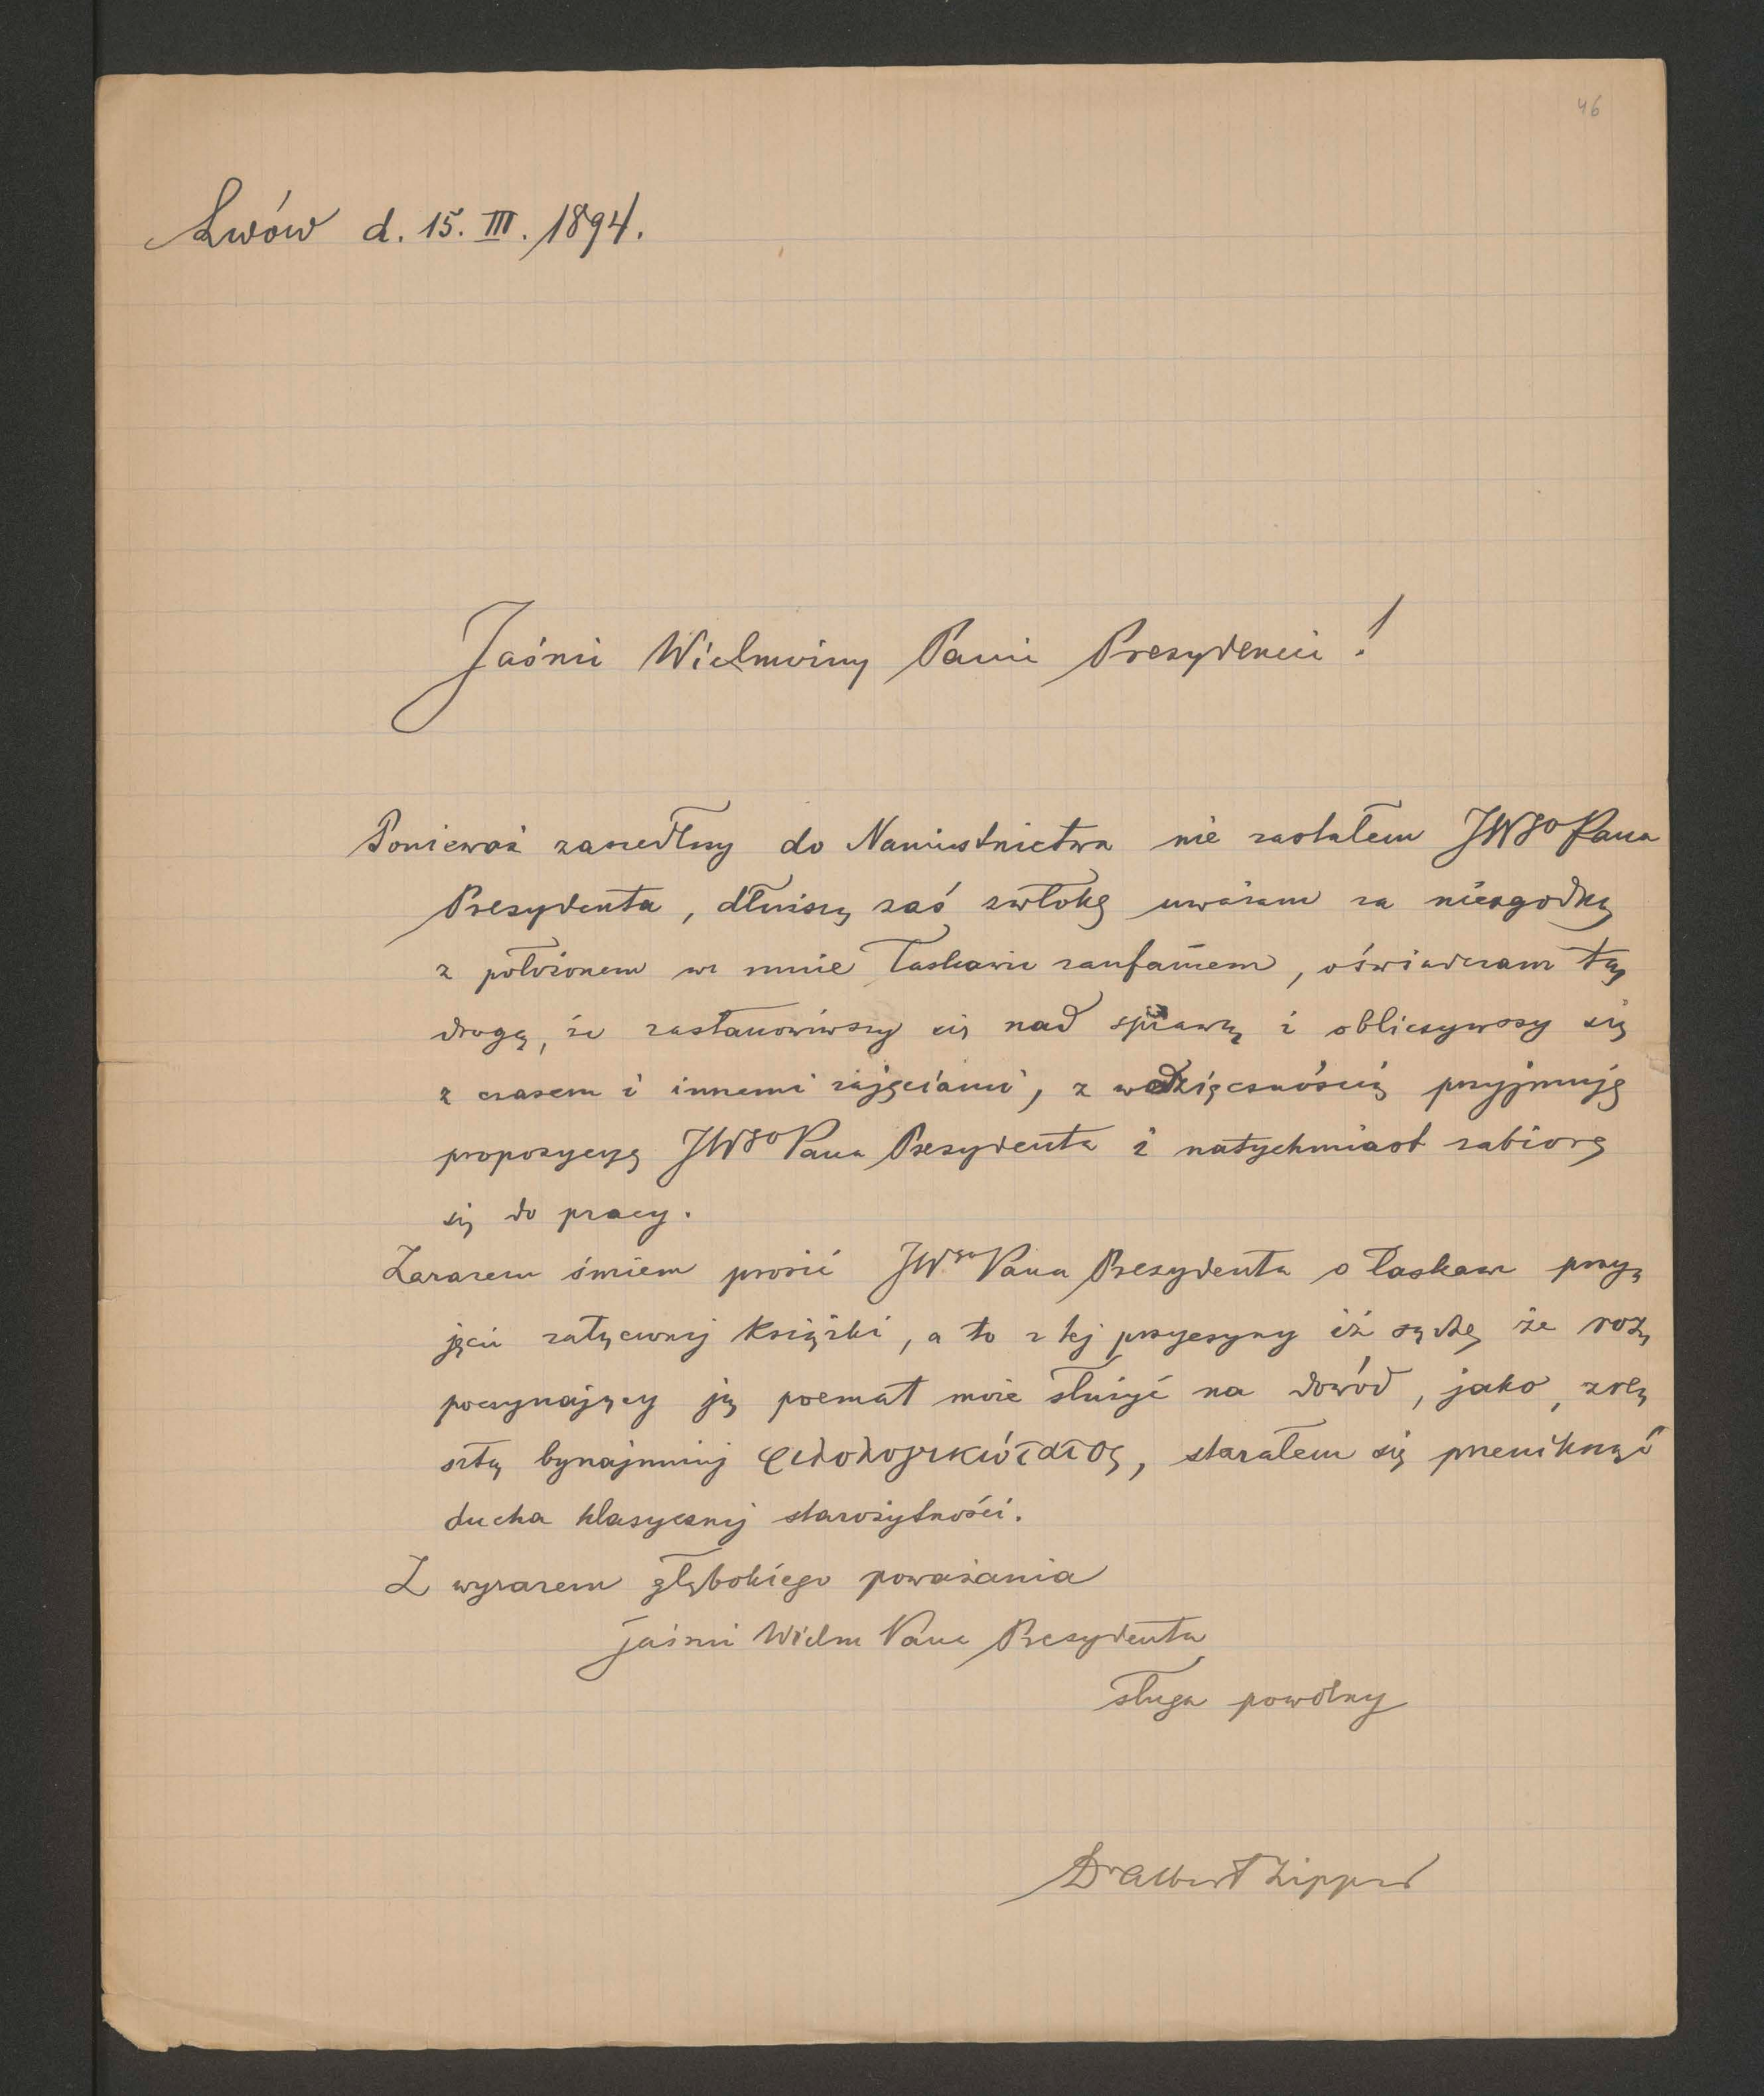 46
Lwów d. 15. III. 1894.
Jaśnie Wielmożny Panie Prezydencie!
Ponieważ zaszedłszy do Namiestnictwa nie zastałem JWgo Pana
Prezydenta, dłuższą zaś zwłokę uważam za niezgodną
z położonem we mnie łaskawie zaufaniem, oświadczam tą
drogą, że zastanowiwszy się nad sprawą i obliczywszy się
z czasem i innemi zajęciami, z wdzięcznością przyjmuję
propozycyę JWgo Pana Prezydenta i natychmiast zabiorę
się do pracy.
Zarazem śmiem prosić JWgo Pana Prezydenta o łaskawe przy=
jęcie załączonej książki, a to z tej przyczyny iż sądzę że roz=
poczynający ją poemat może służyć na dowód, jako, zre=
sztą bynajmniej φιλολογικώτατος, starałem się przeniknąć
ducha klasycznej starożytności.
Z wyrazem głębokiego poważania
Jaśnie Wielm Pana Prezydenta
sługa powolny
Dr Albert Zipper